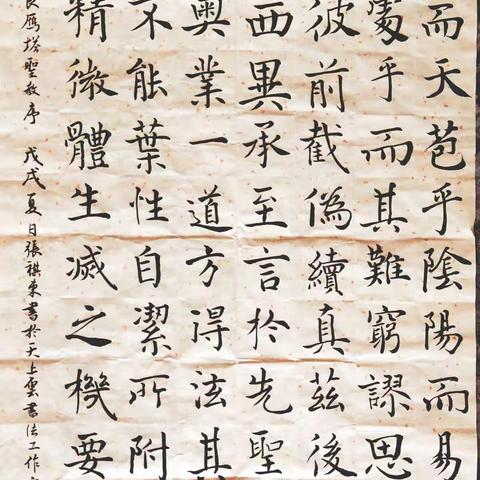 而天苞乎陰陽而易
處乎而其難窮謬思
彼前截偽續真茲後
西異承至言於先聖
奧業一道方淂法其
不能葉性自潔所附
精微體生滅之機要
良雁塔聖教序 戊戌夏日張祺東書於天上雲書法工作